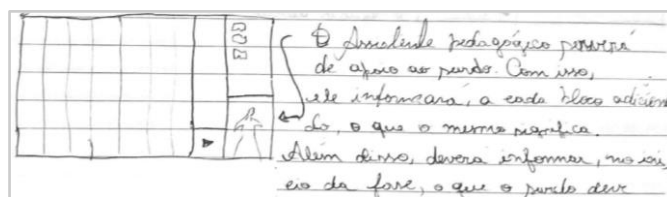 O Assistente pedagógico servirá
de apoio ao surdo. Com isso,
ele informará, a cada bloco adicion
do, o que o mesmo significa.
Além disso, devera informar, no iní
cio da fase, o que o surdo deve